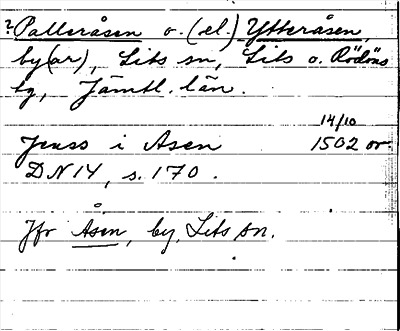 ?Palleråsen o. (el.) Ytteråsen,
by(ar), Lits sn, Lits o. Rödöns
tg, Jämtl. län.
14/10
Jenss i Asen 1502 or
DN 14, s. 170.
Jfr Åsen, by, Lits sn.